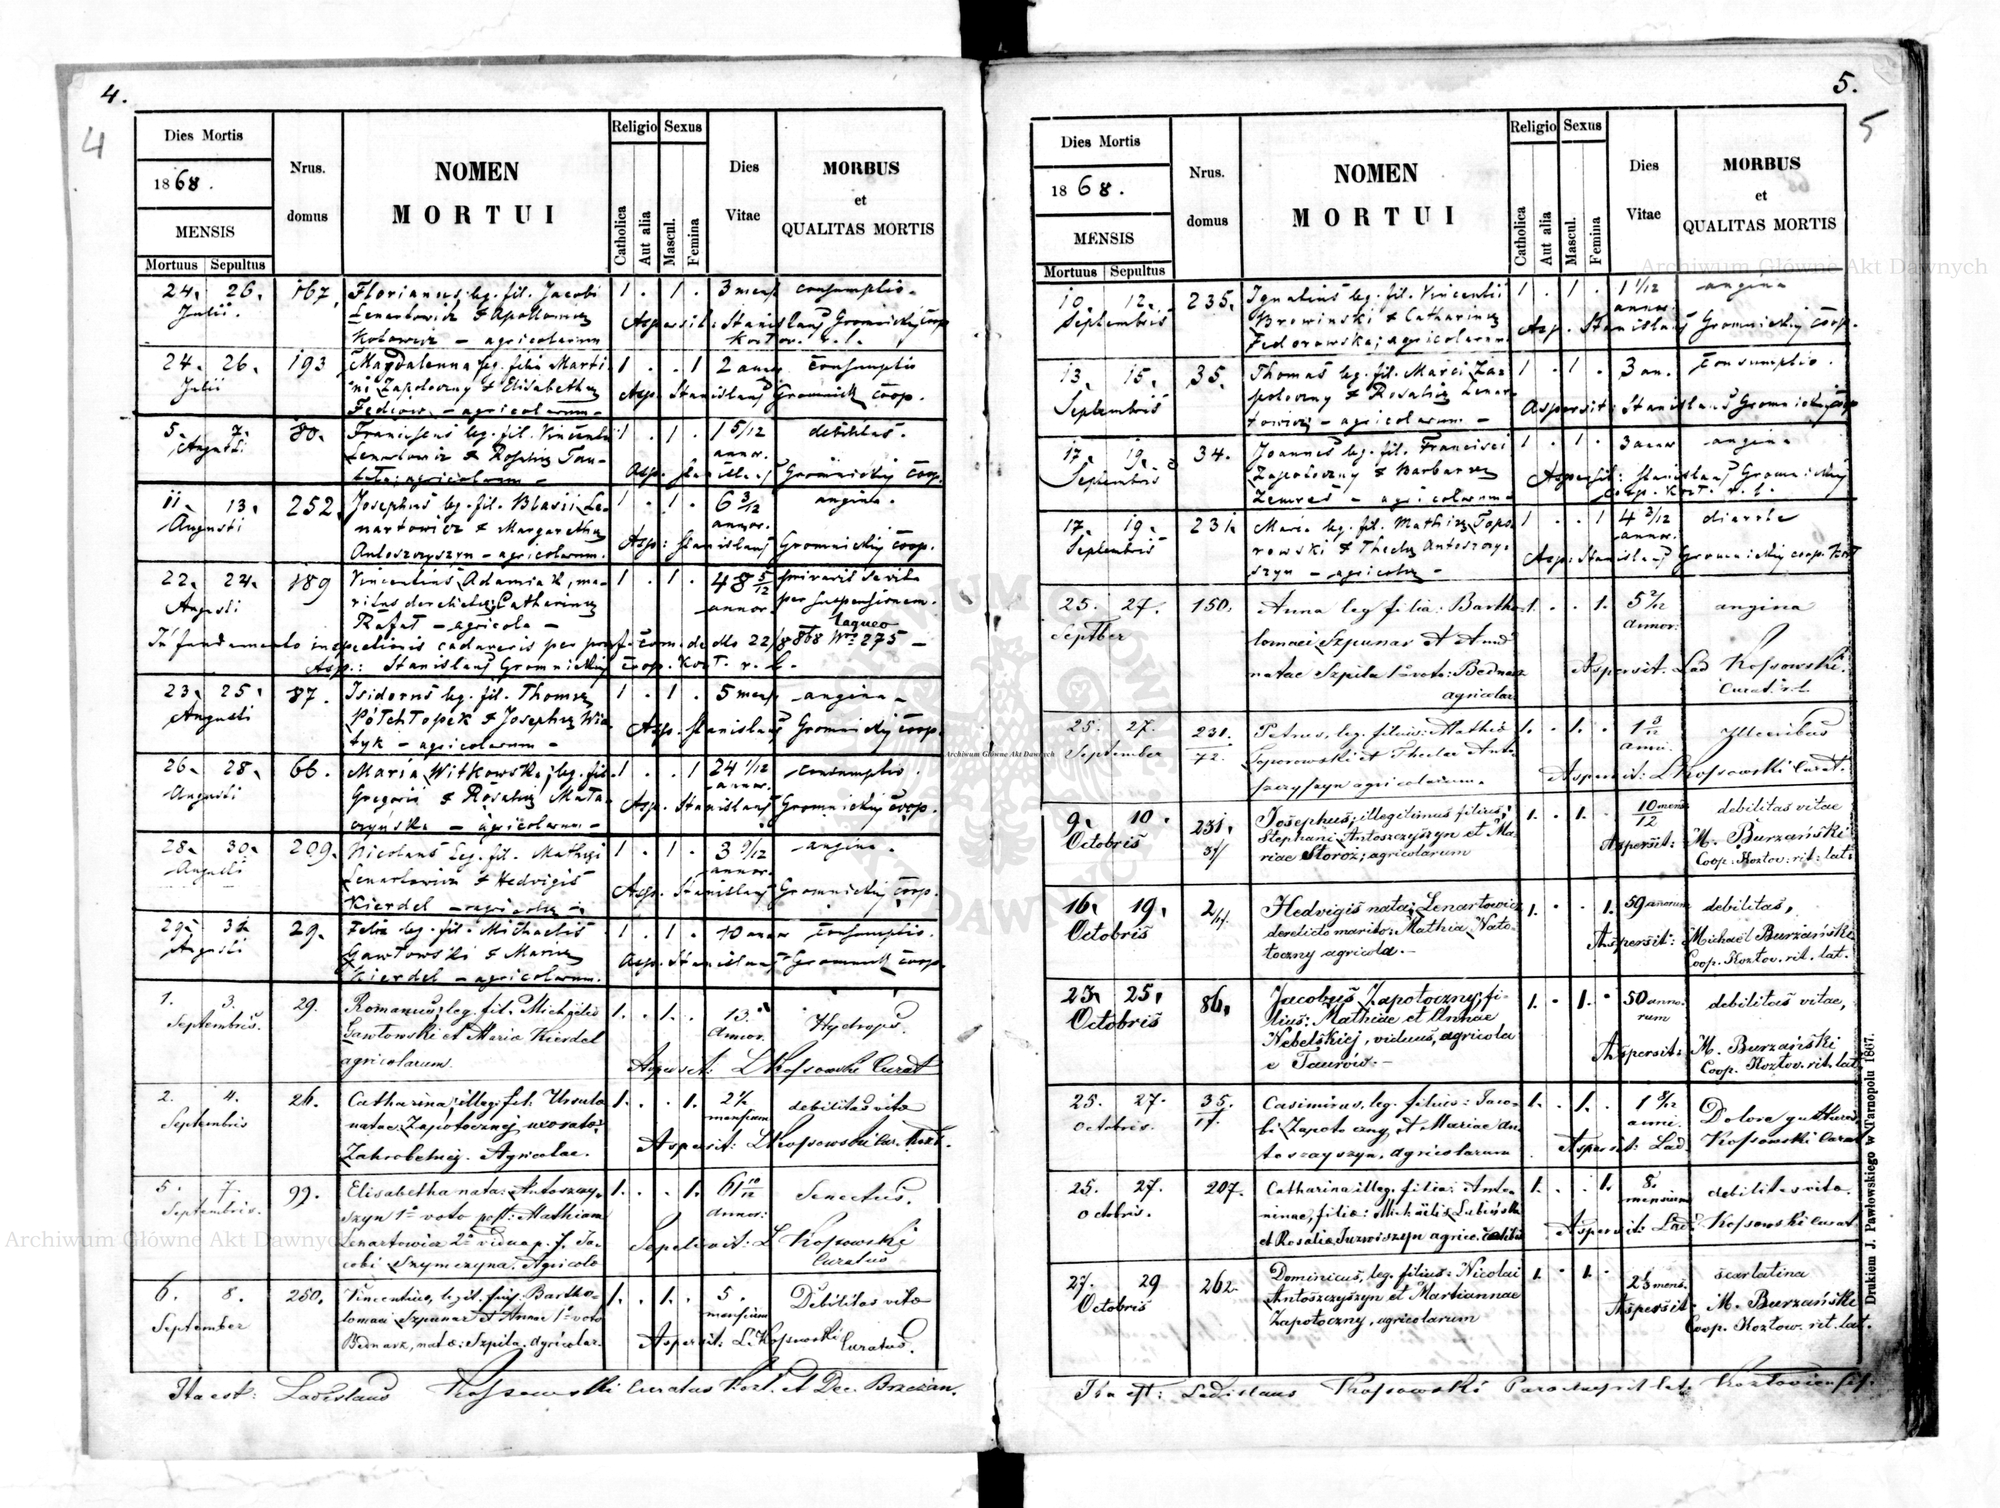 4.
4
Dies Mortis
1868.
MENSIS
Mortuus Sepultus
Nrus. domus
NOMEN MORTUI
Religio
Catholica
Aut alia
Sexus
Mascul.
Femina
Dies Vitae
MORBUS et QUALITAS MORTIS
24. 26. 167. Florianus leg. fil. Jacobi 1 . 1 . 3 mens consumptio.
Julii. Lenartowicz & Apolloniae Aspersit: Stanislaus Gromnicki coop
Kotowicz – agricolarum Kozlov. r. l.
24. 26. 193 Magdalenna leg. filia Marti 1 . . 1 2 annor consumptio
Julii ni Zapotoczny & Elisabethae Asp. Stanislaus Gromnicki coop.
Fediow – agricolarum –
5. 7. 80. Franciscus leg. fil. Vincentii 1 . 1 . 1 5/12 debilitas.
Augusti Lenartowicz & Rosaliae annor. Asp. Stanislaus Gromnicki coop.
agricolarum –
11. 13. 252. Josephus leg. fil. Blasii Le- 1 . 1 . 6 3/12 angina.
Augusti nartowicz & Margarethae annor.
Antoszczyszyn – agricolarum. Asp: Stanislaus Gromnicki coop.
22. 24. 189 Vincentius Adamiak, ma- 1 . 1 . 48 5/12 privavit se vita
Augusti ritus derelictus Catharinae annor. per suspensionem.
Rafat – agricola – laqueo
In fundamento inspectionis cadaveris per prof. com. de dto 22/8 868 Nro 275 –
Asp.: Stanislaus Gromnicki coop. Kozł. r. l.
23. 25. 87. Isidorus leg. fil. Thomae 1 . 1 . 5 mens angina –
Augusti Półchłopek & Josephae Wia- Asp. Stanislaus Gromnicki coop.
tyk – agricolarum –
26. 28. 66. Maria Witkowska, leg. fil. 1 . . 1 24 1/12 consumptio.
Augusti Gregorii & Rosaliae Mata- annor.
czyńska – agricolarum – Asp. Stanislaus Gromnicki coop.
28. 30. 209. Nicolaus leg. fil. Mathiae 1 . 1 . 3 9/12 angina.
Augusti Lenartowicz & Hedvigis annor.
Kierdel – agricolae – Asp. Stanislaus Gromnicki coop.
29. 31. 29. Felix leg. fil. Michaelis 1 . 1 . 10 annor consumptio.
Augusti Gawłowski & Mariae Asp. Stanislaus Gromnicki coop.
Kierdel – agricolarum.
1. 3. 29. Romanus, leg. fil. Michaelis 1. . 1. . 13. Hydrops.
Septembris. Gawłowski et Maria Kierdel Annor.
agricolarum. Aspersit: L Kossowski Curat
2. 4. 26. Catharina, illeg. fil. Ursula 1. . . 1. 2 1/2 debilitas vitae
Septembris natae Zapotocznej uxorato: mensium
Zahrobelnej. Agricolae. Aspersit: L Kossowski Cur. Kozł.
5. 7. 99. Elisabetha nata: Antoszczy- 1. . . 1. 61 10/12 Senectus.
Septembris. szyn 1o voto post: Mathiam Annor:
Lenartowicz 2o vidua p. f. Ja- Sepelivit: L Kossowski
cobi Szymczyna. Agricola Curatus
6. 8. 250. Vincentius, legit. fil: Bartho- 1. . 1. . 5. Debilitas vitae
September lomaei Szpunar et Annae 1o voto mensium
Bednarz, natae: Szpila. Agricolar. Aspersit: L. Kossowski Curatus.
Ita est: Ladislaus Kossowski Curatus Kozł. et Dec. Brzeżan.
5.
5
Dies Mortis
1868.
MENSIS
Mortuus Sepultus
Nrus. domus
NOMEN MORTUI
Religio
Catholica
Aut alia
Sexus
Mascul.
Femina
Dies Vitae
MORBUS et QUALITAS MORTIS
10. 12. 235. Ignatius leg. fil. Vincentii 1 . 1 . 1 1/12 angina
Septembris Browinski & Catharinae annor.
Fedorowska; agricolarum Asp. Stanislaus Gromnicki coop.
13. 15. 35. Thomas leg. fil. Marci Za- 1 . 1 . 3 an. consumptio.
Septembris potoczny & Rosaliae Lenar- Aspersit: Stanislaus Gromnicki coop
towicz – agricolarum –
17. 19. 34. Joannes leg. fil. Francisci 1 . 1 . 3 annor angina
Septembris Zapotoczny & Barbarae Aspersit: Stanislaus Gromnicki
Zemres – agricolarum – coop. Kozł. r. l.
17. 19. 231. Maria leg. fil. Mathiae Topo- 1 . . 1 4 3/12 diarrhe
Septembris rowski & Theclae Antoszczy- annor.
szyn – agricolae – Asp: Stanislaus Gromnicki coop. Kozł
25. 27. 150. Anna leg filia: Bartho- 1. . . 1. 5 2/12 angina
Septber lomaei Szpunar et Annae annor:
natae Szpila 1o voto: Bednarz Aspersit. Lad Kossowski.
agricolar. Curat. r. l.
25. 27. 231. Petrus, leg. filius: Mathiae 1. . 1. . 1 3/12 Ulceribus
September 72. Toporowski et Theclae Anto- anni.
szczyszyn agricolarum. Aspersit: L Kossowski Curat.
9. 10. 231. Josephus; illegitimus filius; 1. . 1. . 10/12 mens debilitas vitae
Octobris Stephani Antoszczyszyn et Ma- Aspersit: M. Burzański
riae Storoż; agricolarum Coop. Kozłov: rit: lat:
16. 19. Hedvigis nata: Lenartowicz 1. . . 1. 59 annorum debilitas,
Octobris derelicto marito: Mathia Nato- Aspersit: Michaël Burzański
toczny agricola. – Coop. Kozłov. rit. lat.
23. 25. 86. Jacobus Zapotoczny; fi- 1. . 1. . 50 anno- debilitas vitae,
Octobris lius: Mathiae et Annae rum
Nebelskiej, viduus, agricola Aspersit: M. Burzański
e Taurów. – Coop. Kozłov. rit. lat.
25. 27. 35. Casimirus, leg. filius: Jaco- 1. . 1. . 1 8/12 Dolore gutturis
Octobris. 17. bi Zapotoczny et Mariae An- anni.
toszczyszyn. Agricolarum Aspersit: Lad. Kossowski Curat
25. 27. 207. Catharina illeg. filia: Anto- 1. . . 1. 8. debilitas vitae.
Octobris. ninae, filiae: Michaëlis Lubińska mensium
et Rosaliae Juzwiszyn agric. Aspersit: Lad: Kossowski Curat
27. 29 262. Dominicus, leg. filius: Nicolai 1. . 1. . mens. scarlatina
Octobris Antoszczyszyn et Mariannae Aspersit: M. Burzański
Zapotoczny, agricolarum Coop. Kozłow. rit. lat.
Ita est: Ladislaus Kossowski Parochus rit lat: Kozłoviensis.
Drukiem J. Pawłowskiego w Tarnopolu 1867.
Archiwum Główne Akt Dawnych
Archiwum Główne Akt Dawnych
Archiwum Główne Akt Dawnych